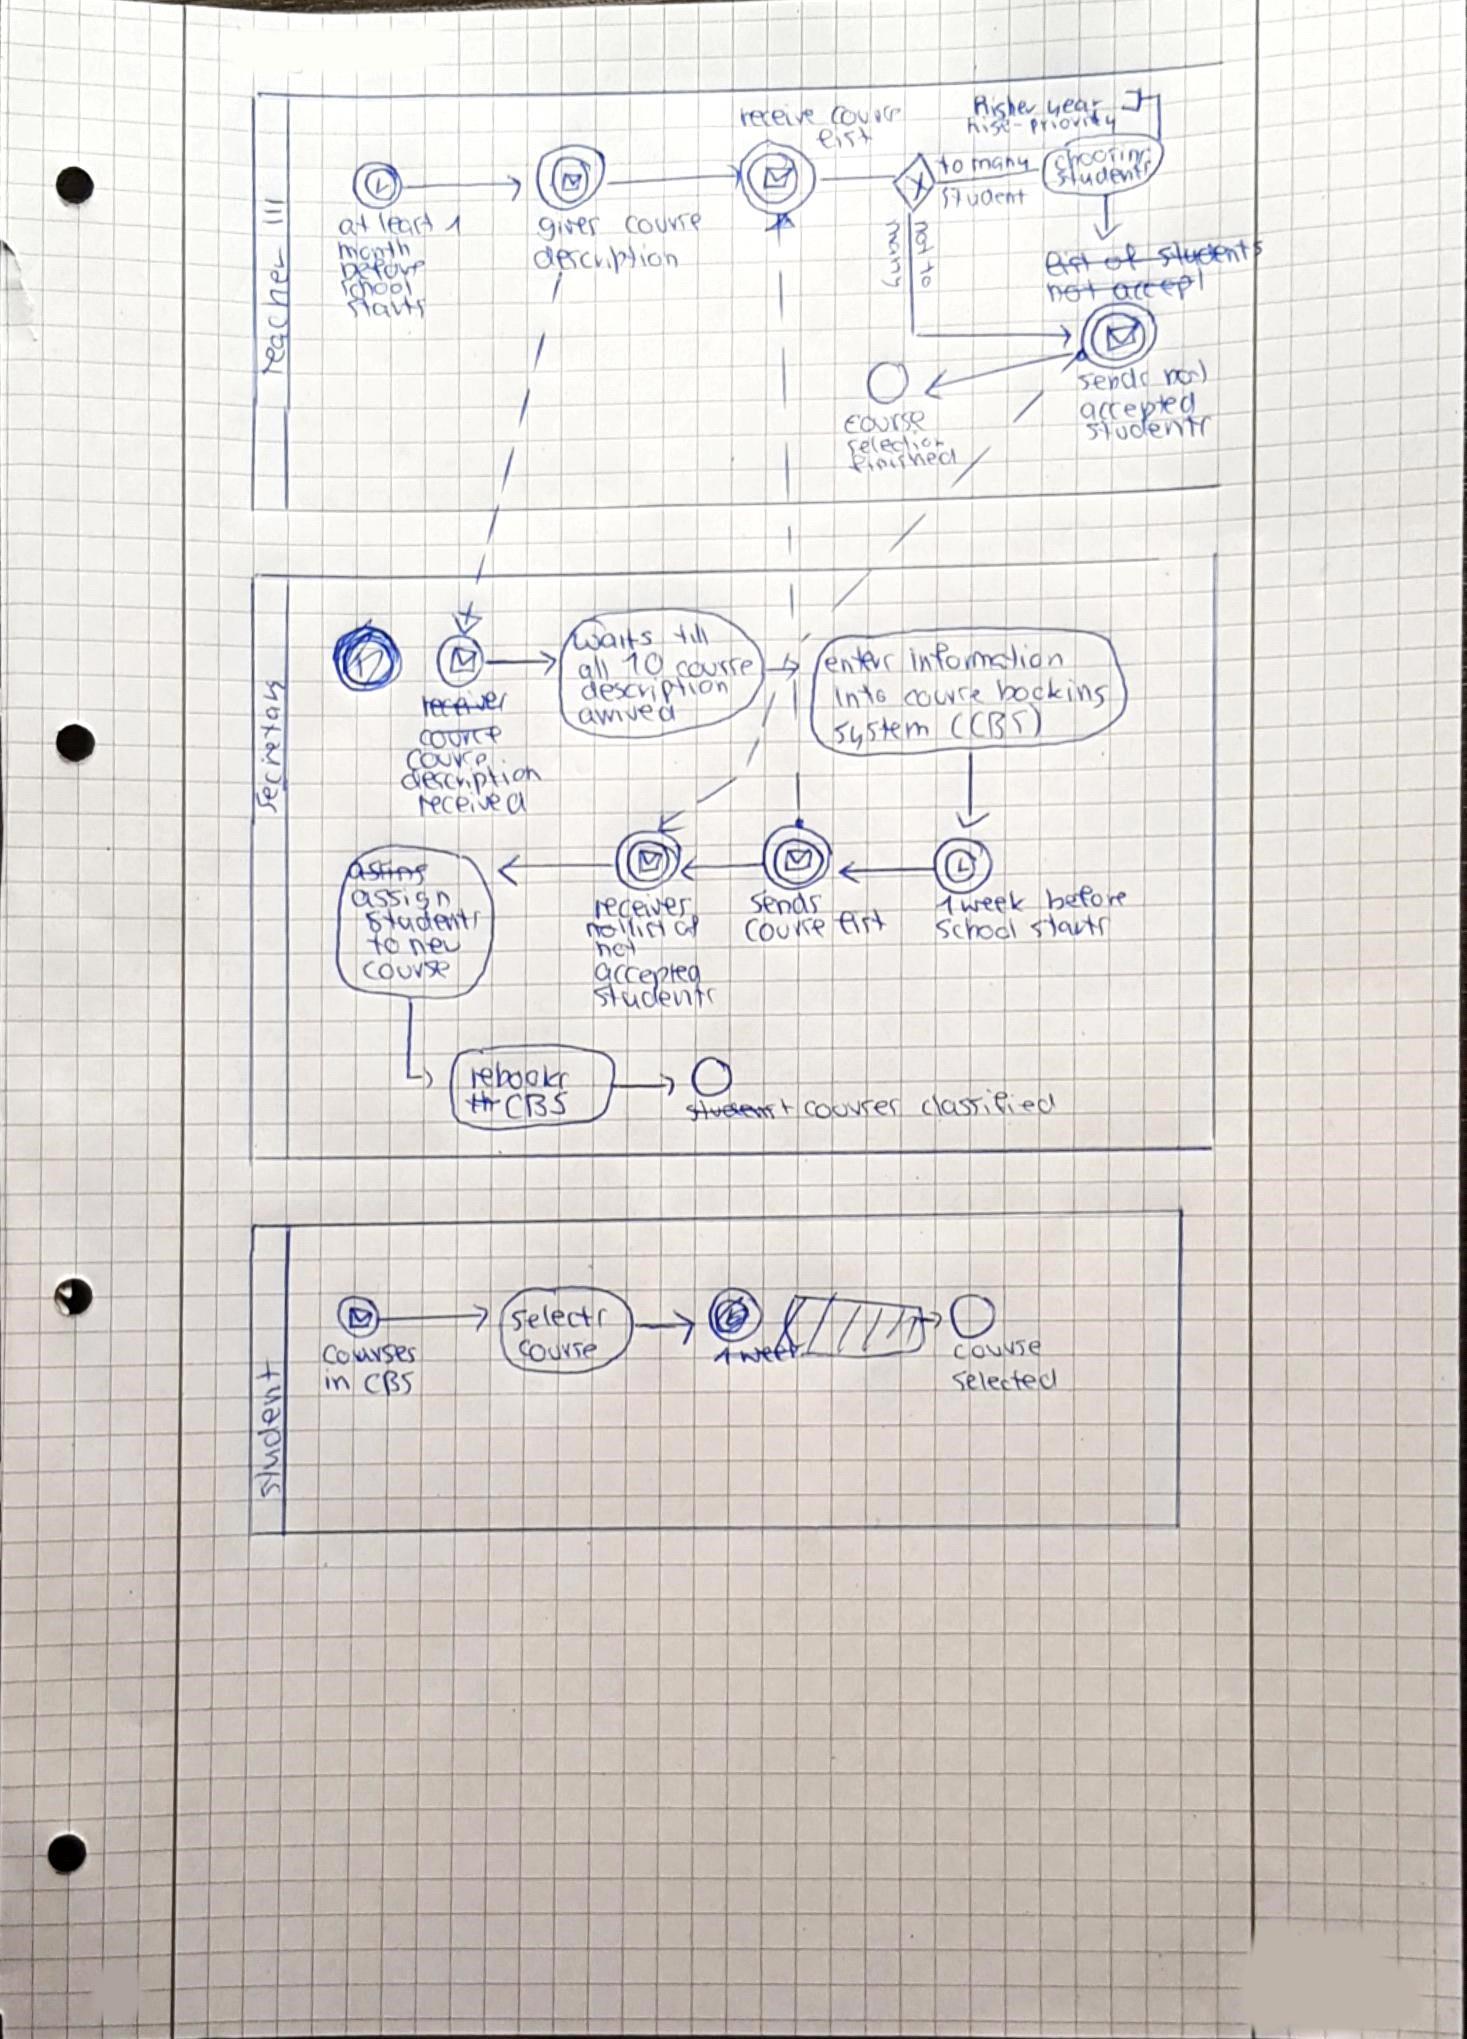 teacher III
at least 1
month
before
school
starts
gives course
description
receive course
list
Higher year
to many
student
not to
many
choosing
students
list of students
not accept
sends
accepted
students
course
selection
finished
secretary
receives
course
course
description
received
waits till
all 10 course
description
arrived
enters information
into course booking
system (CBS)
1 week before
school starts
sends
course list
receives
list of
not
accepted
students
assign
students
to new
course
rebooks
CBS
courses classified
student
courses
in CBS
selects
course
1 week
course
selected